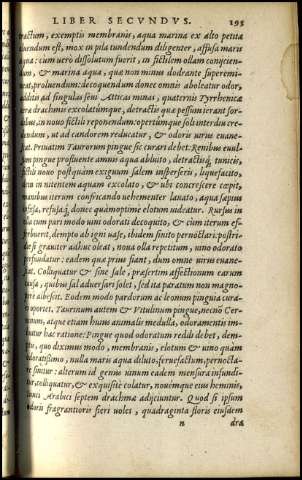 LIBER SECVNDVS. 195
tractum, exemptis membranis, aqua marina ex alto petita
luendum est, mox in pila tundendum diligenter, affusa maris
aqua: cum uero dissolutum fuerit, in fictilem ollam conijcien-
dum, & marina aqua, quæ non minus dodrante superemi-
neat, proluendum: decoquendum donec omnis aboleatur odor,
additur ad singulas seui Atticas minas, quaternis Tyrrhenicæ
ceræ drachmis excolatúmque, detractis quæ pessum ierant sor-
dibus, in nouo fictili reponendum: opertúmque soli interdiu cre-
dendum, ut ad candorem reducatur, & odoris uirus euane-
scat. Priuatim Taurorum pingue sic curari debet. Renibus euul-
sum pingue profluente amnis aqua abluito, detractisq́; tunicis,
fictili nouo postquam exiguum salem insperseris, liquefacito,
in nitentem aquam excolato, & ubi concrescere cœpit,
manibus iterum confricando uehementer lanato, aqua sæpius
effusa, refusaq́; donec quàmoptime elotum uideatur. Rursus in
olla cum pari modo uini odorati decoquito, & cum iterum ef-
ferbuerit, dempto ab igni uase, ibidem sinito pernoctari: postri-
die si grauiter adhuc oleat, noua olla repetitum, uino odorato
perfundatur: eadem quæ prius fiant, dum omne uirus euane-
scat. Colliquatur & sine sale, præsertim affectionum earum
causa, quibus sal aduersari solet, sed ita paratum non magno-
pere albescit. Eodem modo pardorum ac leonum pinguia cura-
ri oportet. Taurinum autem & Vitulinum pingue, necnō Cer-
uinum, atque etiam huius animalis medulla, odoramentis im-
buitur hac ratione: Pingue quod odoratum reddi debet, dem-
ptis, quo diximus modo, membranis, elotum & uino quàm
odoratissimo, nulla maris aqua deluto, feruefactum, pernocta-
re sinitur: alterum id genus uinum eadem mensura infundi-
tur, colliquatur, & exquisitè colatur, nouémque eius heminis,
iunci Arabici septem drachmæ adijciuntur. Quod si ipsum
odoris fragrantioris fieri uoles, quadraginta floris eiusdem
n dra